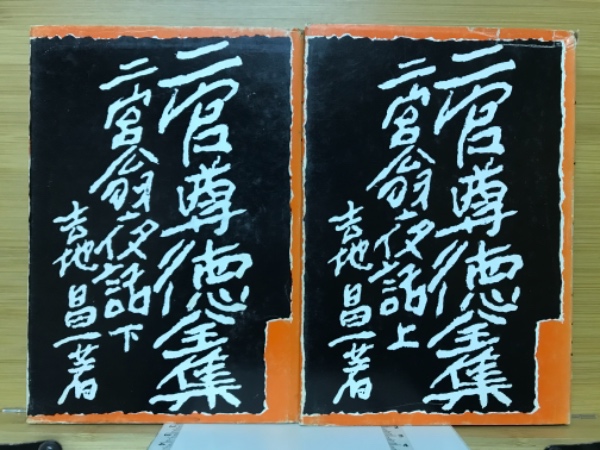 二宮尊徳全集
二宮翁夜話 下
吉地昌一著
二宮尊徳全集
二宮翁夜話 上
吉地昌一著